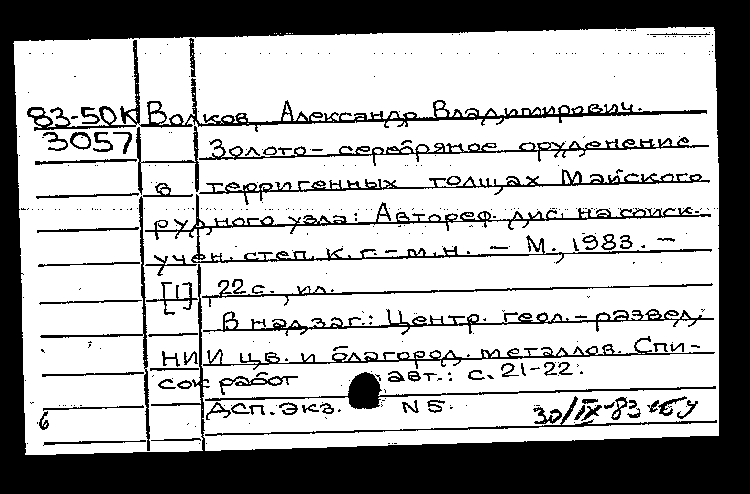 83-50К Волков, Александр Владимирович.
3057 Золото-серебряное оруденение
в терригенных толщах Майского
рудного узла: Автореф. дис. на соиск.
учен. степ. к. г.-м. н. - М., 1983. -
[1], 22 с., ил.
В надзаг.: Центр. геол.-развед.
НИИ цв. и благород. металлов. Спи-
сок работ авт.: с. 21-22.
ДСП. экз. N 5. 30/IX-83
6